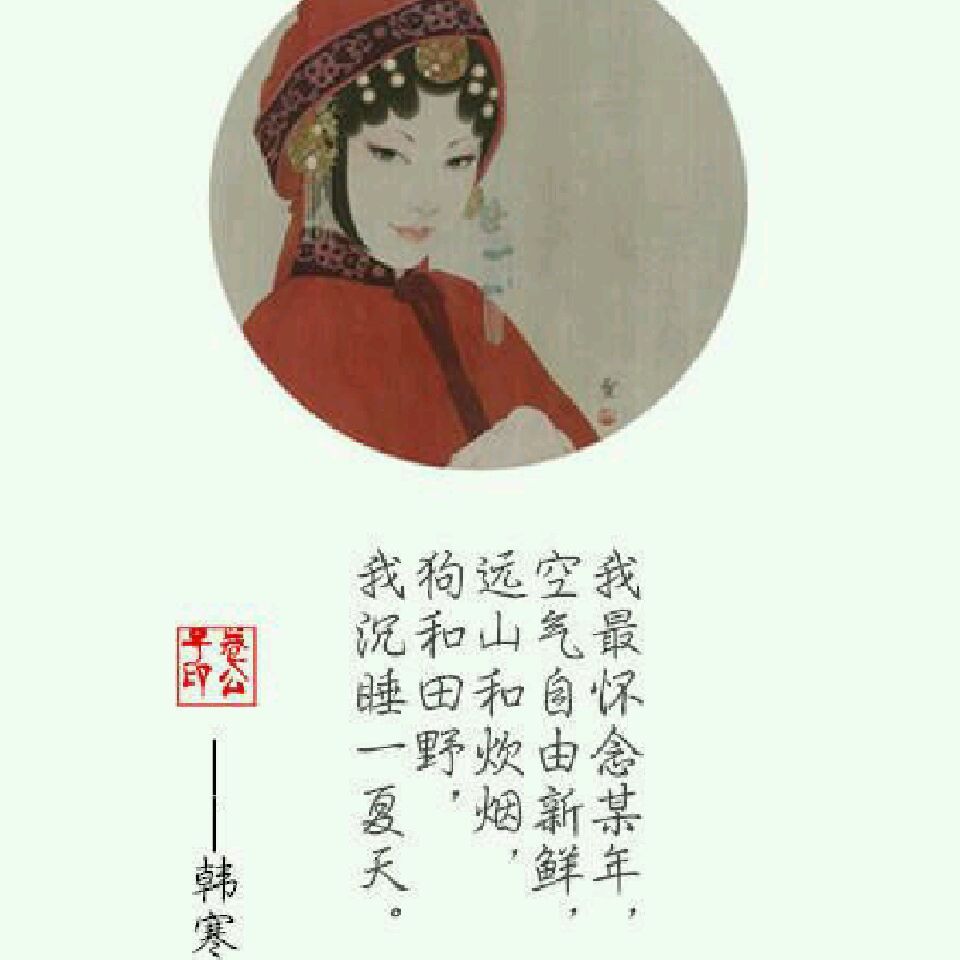 我最怀念某年，
空气自由新鲜，
远山和炊烟，
狗和田野，
我沉睡一夏天。
——韩寒